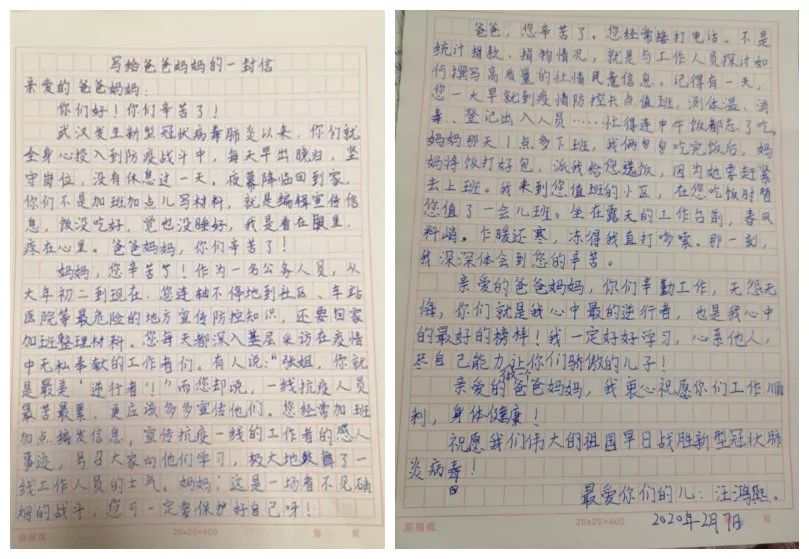 写给爸爸妈妈的一封信
亲爱的爸爸妈妈：
你们好！你们辛苦了！
武汉发生新型冠状病毒肺炎以来，你们就
全身心投入到防疫战斗中，每天早出晚归，坚
守岗位，没有休息过一天。夜幕降临回到家，
你们不是加班加点儿写材料，就是编辑宣传信
息，饭没吃好，觉也没睡好，我是看在眼里，
疼在心里。爸爸妈妈，你们辛苦了！
妈妈，您辛苦了！作为一名公务人员，从
大年初二到现在，您连轴不停地到社区、车站
医院等最危险的地方宣传防控知识，还要回家
加班整理材料。您每天都深入基层采访在疫情
中无私奉献的工作者们。有人说：“张姐，你就
是最美‘逆行者’！”而您却说，一线抗疫人员
最苦最累，更应该多多宣传他们。您经常加班
加点编发信息，宣传抗疫一线的工作者的感人
事迹，号召大家向他们学习，极大地鼓舞了一
线工作人员的士气。妈妈，这是一场看不见硝
烟的战斗，您可一定要保护好自己呀！
原稿纸
20×20=400
第 页
爸爸，您辛苦了。您经常接打电话，不是
统计捐款、捐物情况，就是与工作人员探讨如
何撰写高质量的社情民意信息。记得有一天，
您一大早就到疫情防控卡点值班，测体温、消
毒、登记出入人员……忙得连中午饭都忘了吃。
妈妈那天1点多下班，我俩匆匆吃完饭后，妈
妈将饭打好包，派我给您送饭，因为她要赶紧
去上班。我来到您值班的小区，在您吃饭时替
您值了一会儿班。坐在露天的工作台前，春风
料峭，乍暖还寒，冻得我直打哆嗦。那一刻，
我深深体会到您的辛苦。
亲爱的爸爸妈妈，你们辛勤工作，无怨无
悔，你们就是我心中最的逆行者，也是我心中
的最好的榜样！我一定好好学习，心系他人，
尽自己能力做一个让你们骄傲的儿子！
亲爱的爸爸妈妈，我衷心祝愿你们工作顺
利，身体健康！
祝愿我们伟大的祖国早日战胜新型冠状肺
炎病毒！
最爱你们的儿：汪鸿熙。
2020年2月7日
原稿纸
20×20=400
第 页